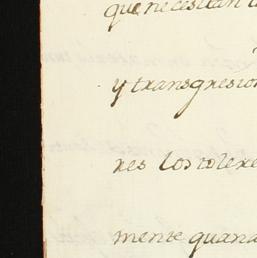 que necesitan
y transgresio
res los tolere
mente quand